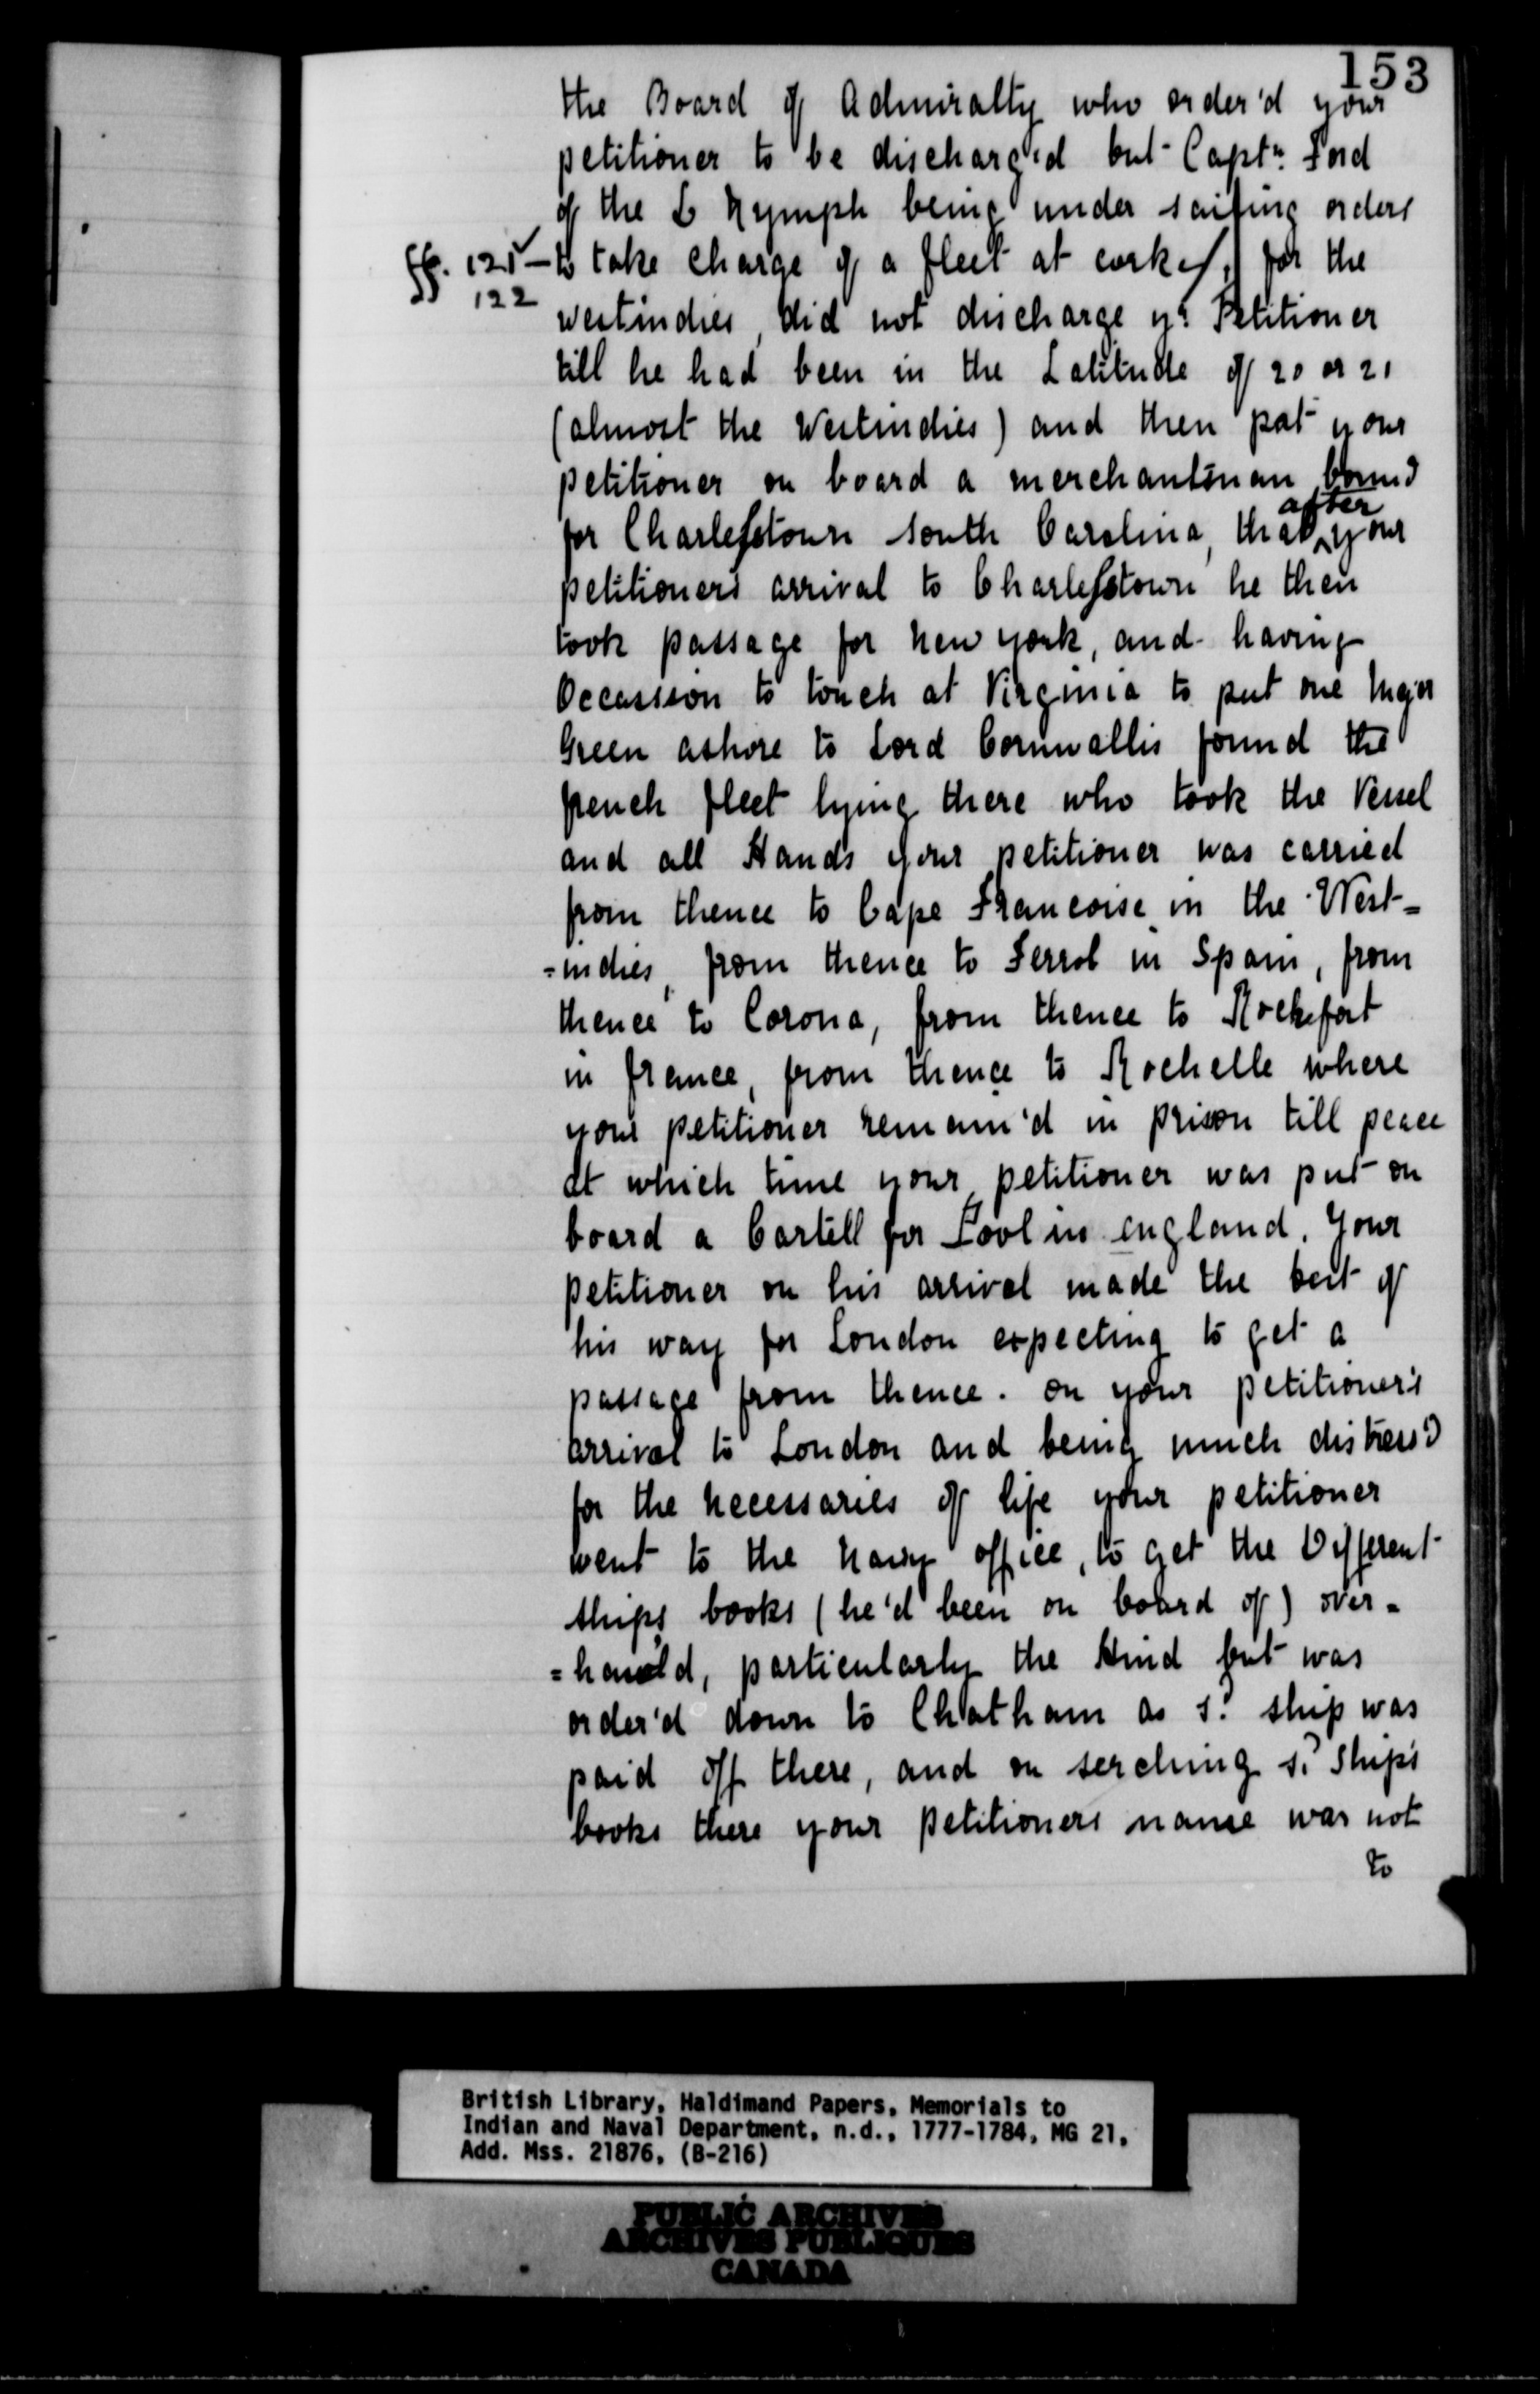 153
the Board of Admiralty who order'd your
petitioner to be discharg'd but Captn. Ford
of the L Nymph being under sailing orders
ff. 121v- to take charge of a fleet at cork, for the
122
westindies, did not discharge yr. Petitioner
till he had been in the Latitude of 20 or 21
(almost the Westindies) and then pat your
petitioner on board a merchantman bound
after
for Charlestown South Carolina, that your
petitioners arrival to Charlestown he then
took passage for new york, and having
Occassion to touch at Virginia to put one Major
Green ashore to Lord Cornwallis found the
french fleet lying there who took the Vessel
and all Hands your petitioner was carried
from thence to Cape Francoise in the West=
=indies, from thence to Ferrol in Spain, from
thence to Corona, from thence to Rochefort
in france, from thence to Rochelle where
your petitioner remain'd in prison till peace
at which time your petitioner was put on
board a Cartell for Pool in england. Your
petitioner on his arrival made the best of
his way for London expecting to get a
passage from thence. on your petitioner's
arrival to London and being much distress'd
for the necessaries of life your petitioner
went to the navy office, to get the Different
ships books (he'd been on board of) over=
=haul'd, particularly the Hind but was
order'd down to Chatham as sd. ship was
paid off there, and on serching sd. Ships
books there your petitioners name was not
to
British Library, Haldimand Papers, Memorials to
Indian and Naval Department, n.d., 1777-1784, MG 21,
Add. Mss. 21876, (B-216)
PUBLIC ARCHIVES
ARCHIVES PUBLIQUES
CANADA